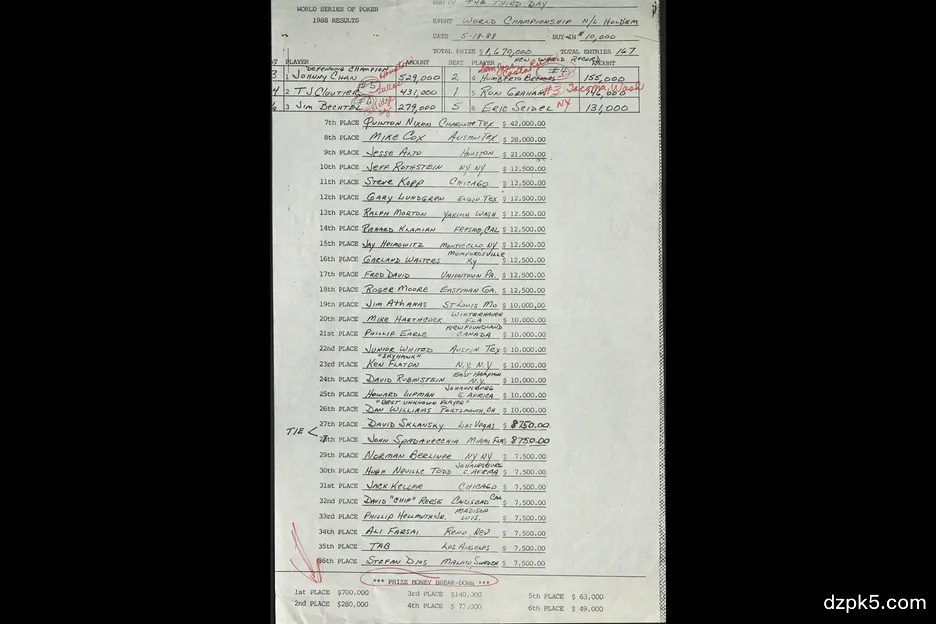 END OF THE THIRD DAY
WORLD SERIES OF POKER
1988 RESULTS
EVENT WORLD CHAMPIONSHIP N/L HOLDEM
DATE 5-18-88 BUY-IN $10,000
TOTAL PRIZE $1,670,000 TOTAL ENTRIES 167
NEW WORLD RECORD
PLAYER AMOUNT SEAT PLAYER AMOUNT
DEFENDING CHAMPION
1 JOHNNY CHAN 529,000 2 4 HUMBERTO 155,000
Houston #4
2 TJ CLOUTIER 431,000 1 5 RON GRAHAM
#5 #3 Tacoma, Wash
3 JIM BECHTEL 279,000 5 6 ERIC SEIDEL NY 131,000
#6
7th PLACE QUINTON NIXON CHARLOTTE TEX $ 42,000.00
8th PLACE MIKE COX AUSTIN TEX $ 28,000.00
9th PLACE JESSE ALTO HOUSTON $ 21,000.00
10th PLACE JEFF ROTHSTEIN NY NY $ 12,500.00
11th PLACE STEVE KOPP CHICAGO $ 12,500.00
12th PLACE GARY LUNDGREN ELGIN TEX $ 12,500.00
13th PLACE RALPH MORTON YAKIMA WASH $ 12,500.00
14th PLACE RICHARD KLAMIAN FRESNO, CAL $ 12,500.00
15th PLACE JAY HEIMOWITZ MONTICELLO, NY $ 12,500.00
16th PLACE GARLAND WALTERS MUNFORDSVILLE KY $ 12,500.00
17th PLACE FRED DAVID UNIONTOWN PA. $ 12,500.00
18th PLACE ROGER MOORE EASTMAN GA. $ 12,500.00
19th PLACE JIM ATHANAS ST LOUIS MO $ 10,000.00
20th PLACE MIKE HARTHCOCK WINTERHAVEN FLA $ 10,000.00
21st PLACE PHILLIP EARLE NEWFOUNDLAND CANADA $ 10,000.00
22nd PLACE JUNIOR WHITED AUSTIN TEX $ 10,000.00
"SKYHAWK"
23rd PLACE KEN FLATON N.Y. N.Y $ 10,000.00
24th PLACE DAVID RUBINSTEIN EAST HAMPTON N.Y. $ 10,000.00
25th PLACE HOWARD LIPMAN JOHANESBURG S. AFRICA $ 10,000.00
"BEST UNKNOWN PLAYER"
26th PLACE DAN WILLIAMS PORTSMOUTH, OH $ 10,000.00
27th PLACE DAVID SKLANSKY LAS VEGAS $ 8750.00
TIE
27th PLACE JOHN SPADAVECCHIA MIAMI FLA $ 8750.00
29th PLACE NORMAN BERLINER NY NY $ 7,500.00
30th PLACE HUGH NEVILLE TODD JOHANESBURG S. AFRICA $ 7,500.00
31st PLACE JACK KELLER CHICAGO $ 7,500.00
32nd PLACE DAVID "CHIP" REESE CARLSBAD CAL $ 7,500.00
33rd PLACE PHILLIP HELLMUTH JR. MADISON WIS. $ 7,500.00
34th PLACE ALI FARSAI RENO, NEV $ 7,500.00
35th PLACE TAB LOS ANGELES $ 7,500.00
36th PLACE STEFAN DIOS MALMO, SWEDEN $ 7,500.00
*** PRIZE MONEY BREAK-DOWN ***
1st PLACE $700,000 3rd PLACE $140,000 5th PLACE $ 63,000
2nd PLACE $280,000 4th PLACE $ 77,000 6th PLACE $ 49,000
dzpk5.com